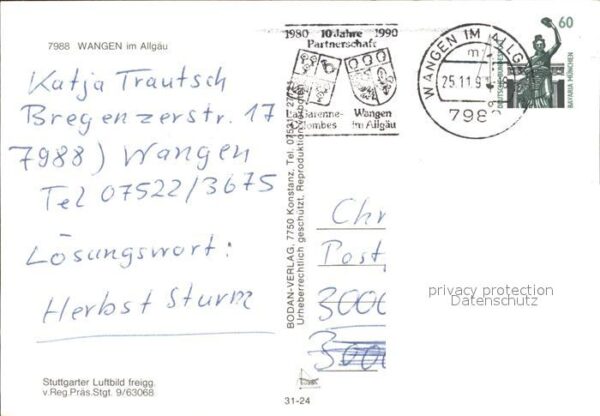 7988 WANGEN im Allgäu
Katja Trautsch
Bregenzerstr. 17
7988) Wangen
Tel 07522/3675
Lösungswort:
Herbst Sturm
Stuttgarter Luftbild freigg.
v.Reg.Präs.Stgt. 9/63068
BODAN-VERLAG, 7750 Konstanz, Tel. 07531/
Urheberrechtlich geschützt, Reproduktion
31-24
1980 10 Jahre 1990
Partnerschaft
La Garenne- Wangen
Colombes im Allgäu
WANGEN IM ALLG
25.11.9
798
60
DEUTSCHE BUNDESPOST
BAVARIA MÜNCHEN
Chr
Post
3000
3000
privacy protection
Datenschutz